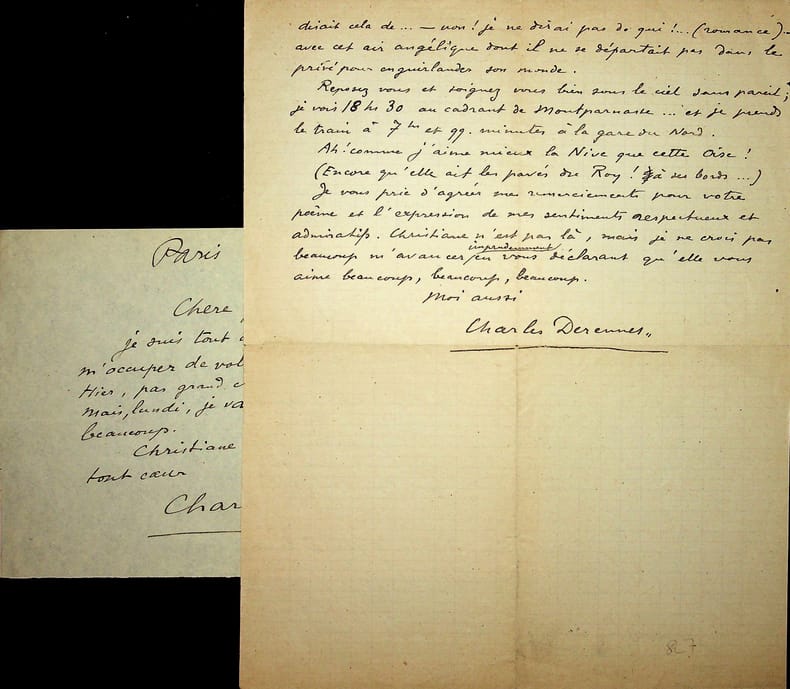 disait cela de ... — non ! je ne dirai pas de qui !... (romance) —
avec cet air angélique dont il ne se départait pas dans le
privé pour enguirlander son monde.
Reposez vous et soignez vous bien sous le ciel sans pareil ;
je vois 18 hs 30 au cadrant de Montparnasse ... et je prends
le train à 7 hs et 99. minutes à la gare du Nord.
Ah ! comme j'aime mieux la Nive que cette Oise !
(Encore qu'elle ait les pavés du Roy ! à ses bords ...)
Je vous prie d'agréer mes remerciements pour votre
poème et l'expression de mes sentiments respectueux et
admiratifs. Christiane n'est pas là, mais je ne crois pas
imprudemment
beaucoup m'avancer en vous déclarant qu'elle vous
aime beaucoup, beaucoup, beaucoup.
Moi aussi
Charles Derennes
Paris
Chère
je suis tout
m'occuper de
Hier, pas grand
Mais, lundi, je
beaucoup.
Christiane
tout cœur
Char